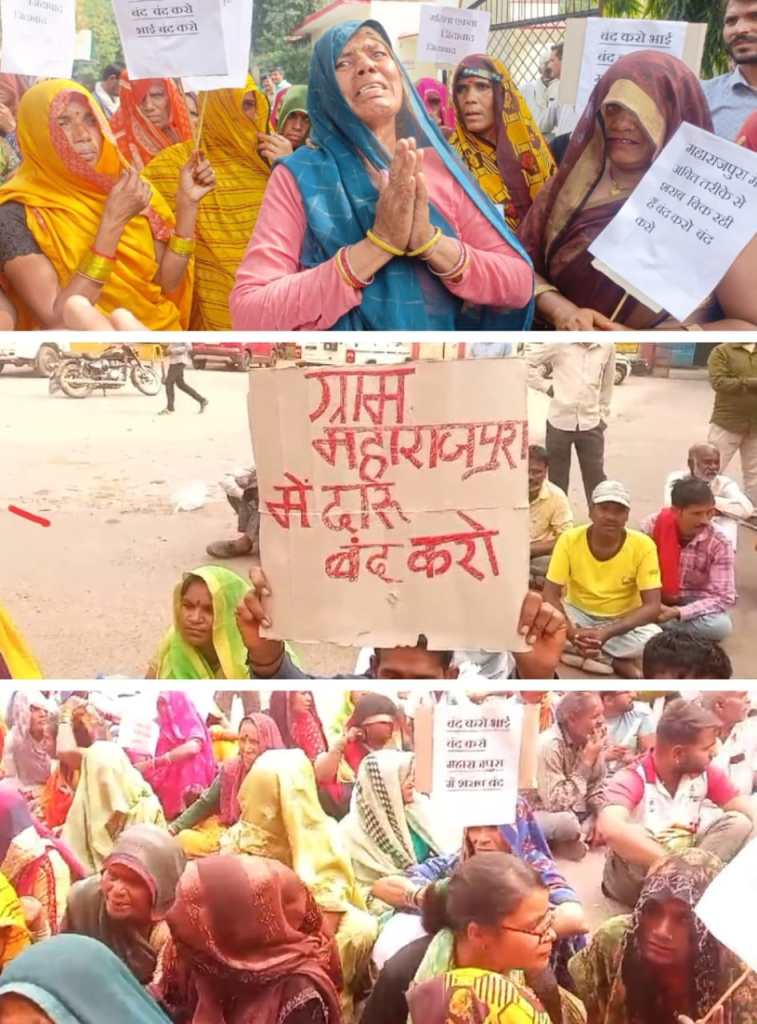 जिंदाबाद
बंद बंद करो
भाई बंद करो
महिला एकता
जिंदाबाद
जिंदाबाद
बंद करो भाई
बंद
महाराजपुरा में
अवैध तरीके से
शराब बिक रही
हैं बंद करो बंद
करो
ग्राम
महाराजपुरा
में दारू
बंद करो
बंद करो भाई
बंद करो
महाराजपुरा
में शराब बंद